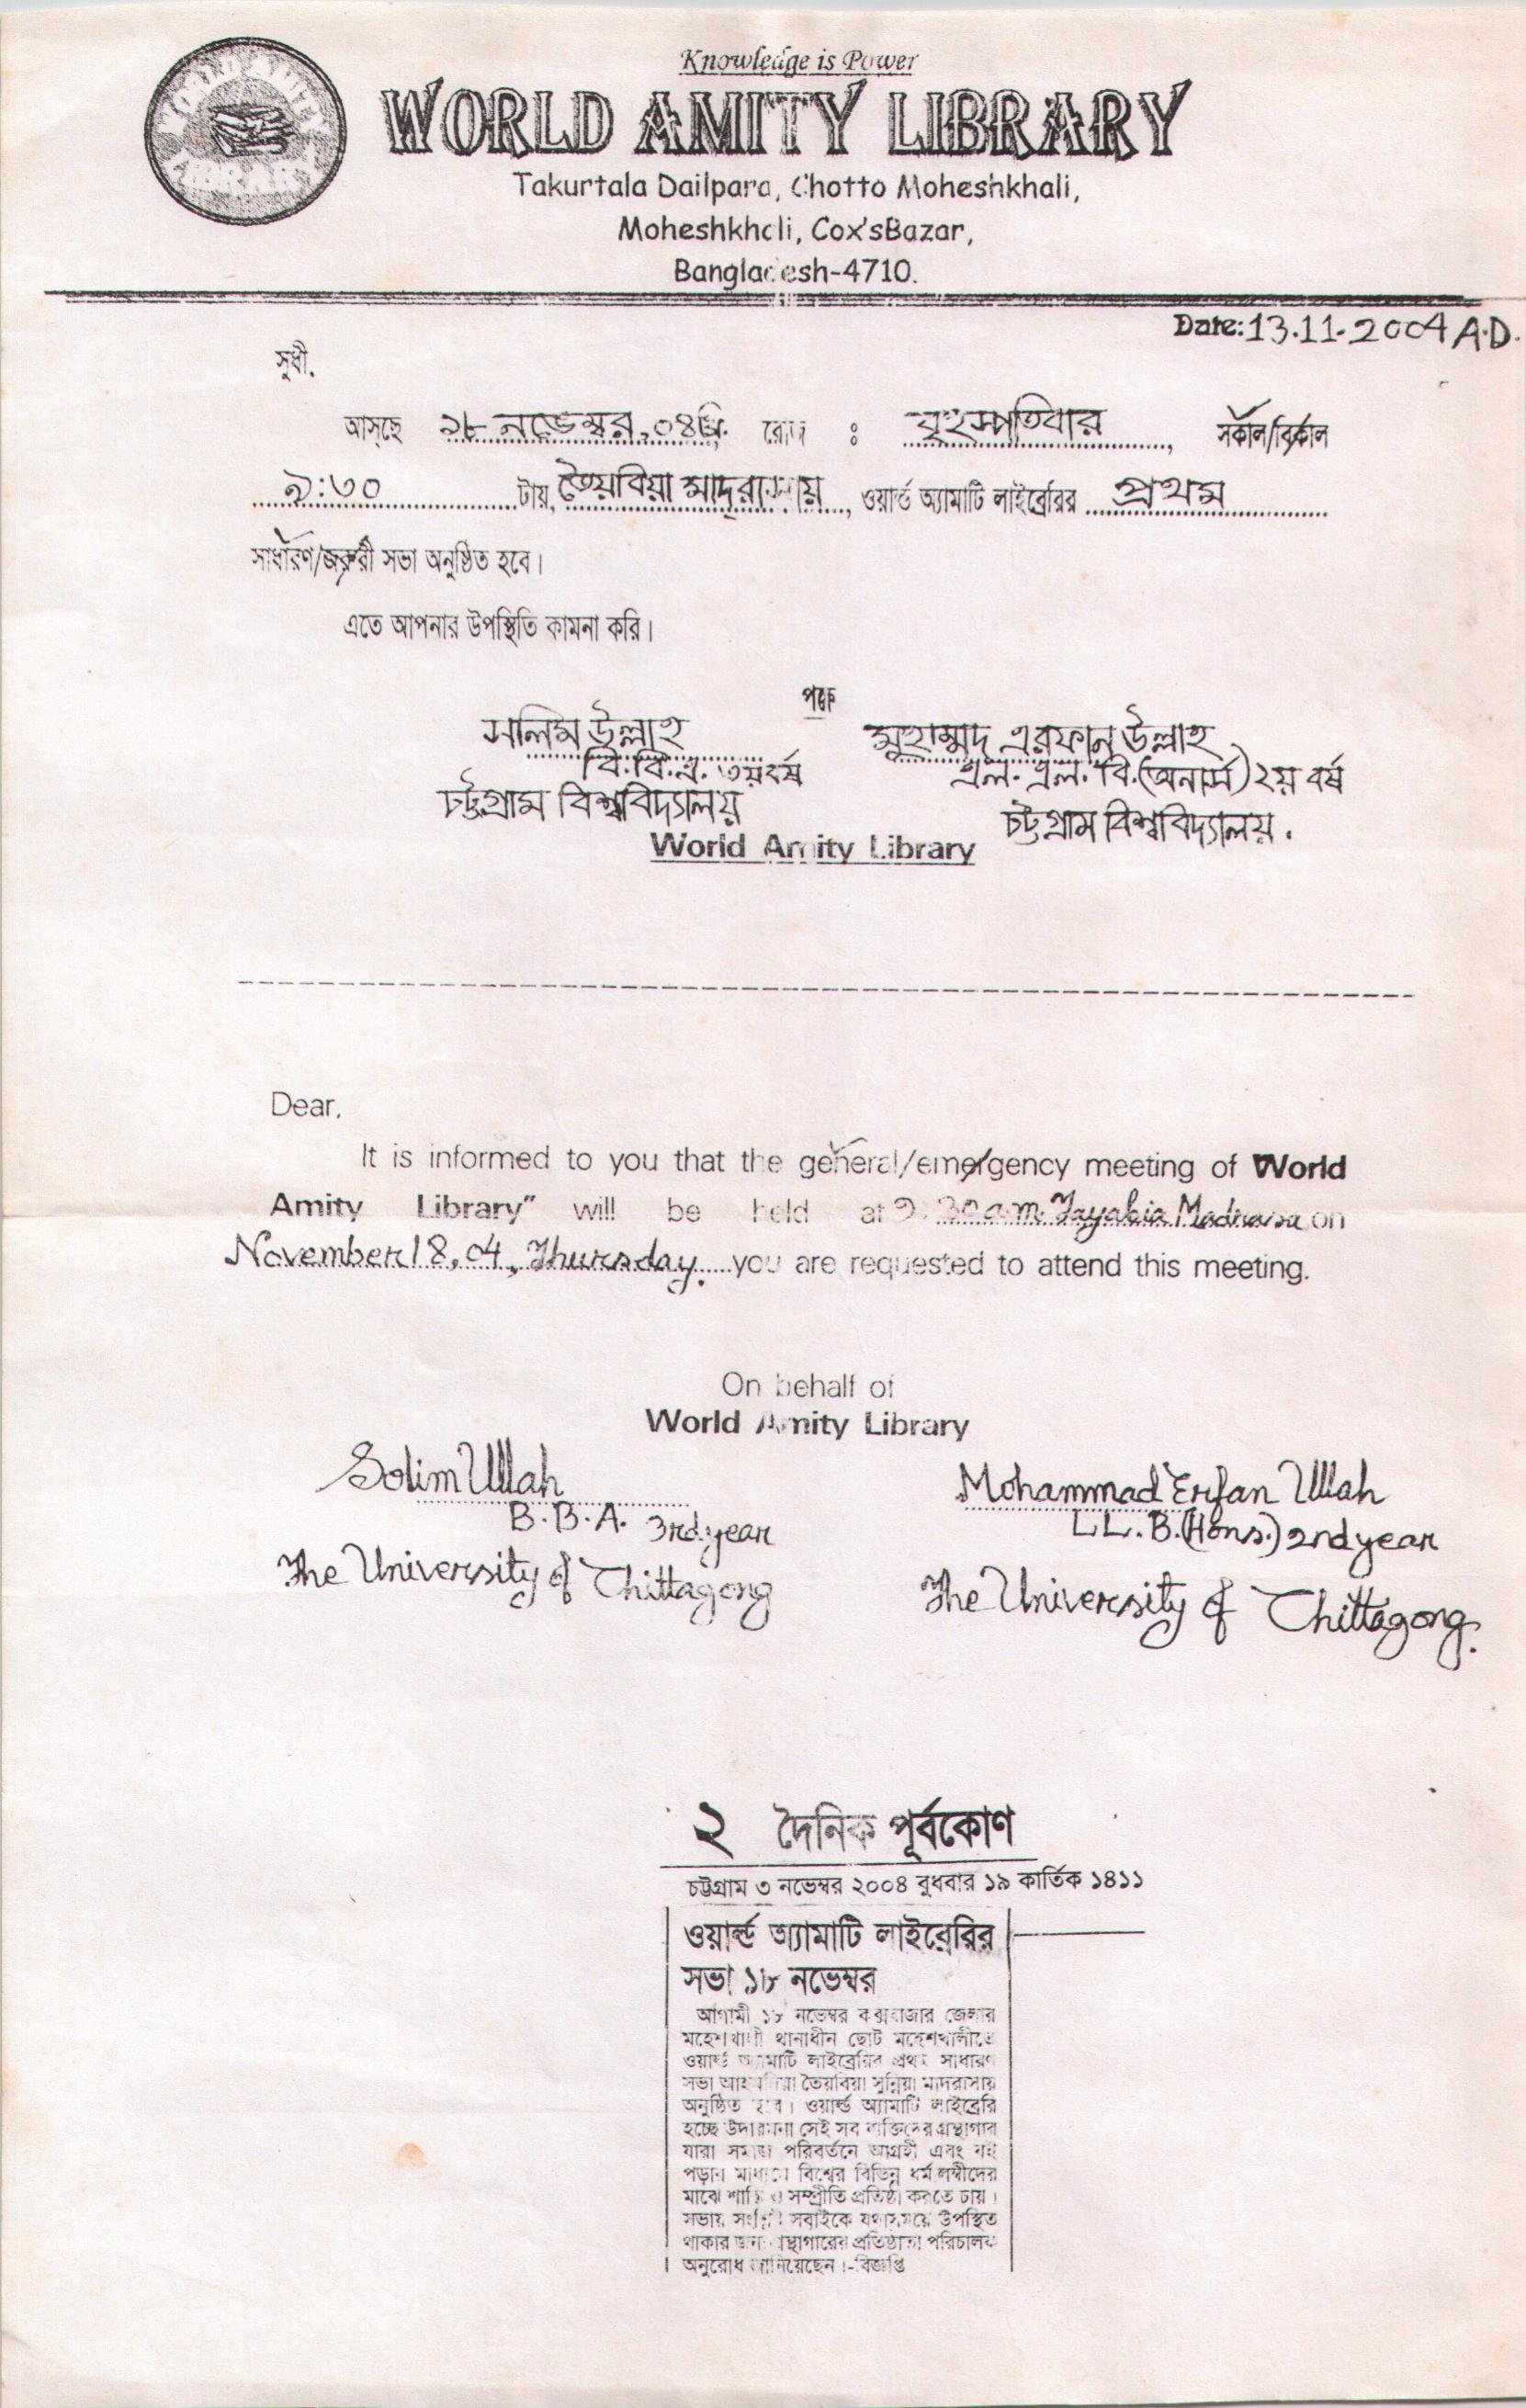 Knowledge is Power
WORLD AMITY LIBRARY
WORLD AMITY LIBRARY
Takurtala Dailpara, Chotto Moheshkhali,
Moheshkhali, Cox'sBazar,
Bangladesh-4710.
Date: 13.11.2004 A.D.
সুধী,
আসছে ১৮ নভেম্বর, ০৪খ্রি. রোজ : বৃহস্পতিবার, সকাল/বিকাল
৯:৩০ টায়, তৈয়বিয়া মাদ্‌রাসায়, ওয়ার্ল্ড অ্যামাটি লাইব্রেরির প্রথম
সাধারণ/জরুরী সভা অনুষ্ঠিত হবে।
এতে আপনার উপস্থিতি কামনা করি।
পক্ষে
সলিম উল্লাহ
বি.বি.এ. ৩য় বর্ষ
চট্টগ্রাম বিশ্ববিদ্যালয়
মুহাম্মদ এরফান উল্লাহ
এল. এল. বি.(অনার্স) ২য় বর্ষ
চট্টগ্রাম বিশ্ববিদ্যালয়.
World Amity Library
Dear,
It is informed to you that the general/emergency meeting of World
Amity Library" will be held at 9:30 a.m. Tayabia Madrasa on
November 18, 04, Thursday. you are requested to attend this meeting.
On behalf of
World Amity Library
Solim Ullah
B.B.A. 3rd year
The University of Chittagong
Mohammad Erfan Ullah
LL.B.(Hons.) 2nd year
The University of Chittagong.
২ দৈনিক পূর্বকোণ
চট্টগ্রাম ৩ নভেম্বর ২০০৪ বুধবার ১৯ কার্তিক ১৪১১
ওয়ার্ল্ড অ্যামাটি লাইব্রেরির
সভা ১৮ নভেম্বর
আগামী ১৮ নভেম্বর কক্সবাজার জেলার
মহেশখালী থানাধীন ছোট মহেশখালীতে
ওয়ার্ল্ড অ্যামাটি লাইব্রেরির প্রথম সাধারণ
সভা আহমদিয়া তৈয়বিয়া সুন্নিয়া মাদরাসায়
অনুষ্ঠিত হবে। ওয়ার্ল্ড অ্যামাটি লাইব্রেরি
হচ্ছে উদারমনা সেই সব ব্যক্তিদের গ্রন্থাগার
যারা সমাজ পরিবর্তনে আগ্রহী এবং বই
পড়ার মাধ্যমে বিশ্বের বিভিন্ন ধর্মাবলম্বীদের
মাঝে শান্তি ও সম্প্রীতি প্রতিষ্ঠা করতে চায়।
সভায় সংশ্লিষ্ট সবাইকে যথাসময়ে উপস্থিত
থাকার জন্য গ্রন্থাগারের প্রতিষ্ঠাতা পরিচালক
অনুরোধ জানিয়েছেন।-বিজ্ঞপ্তি